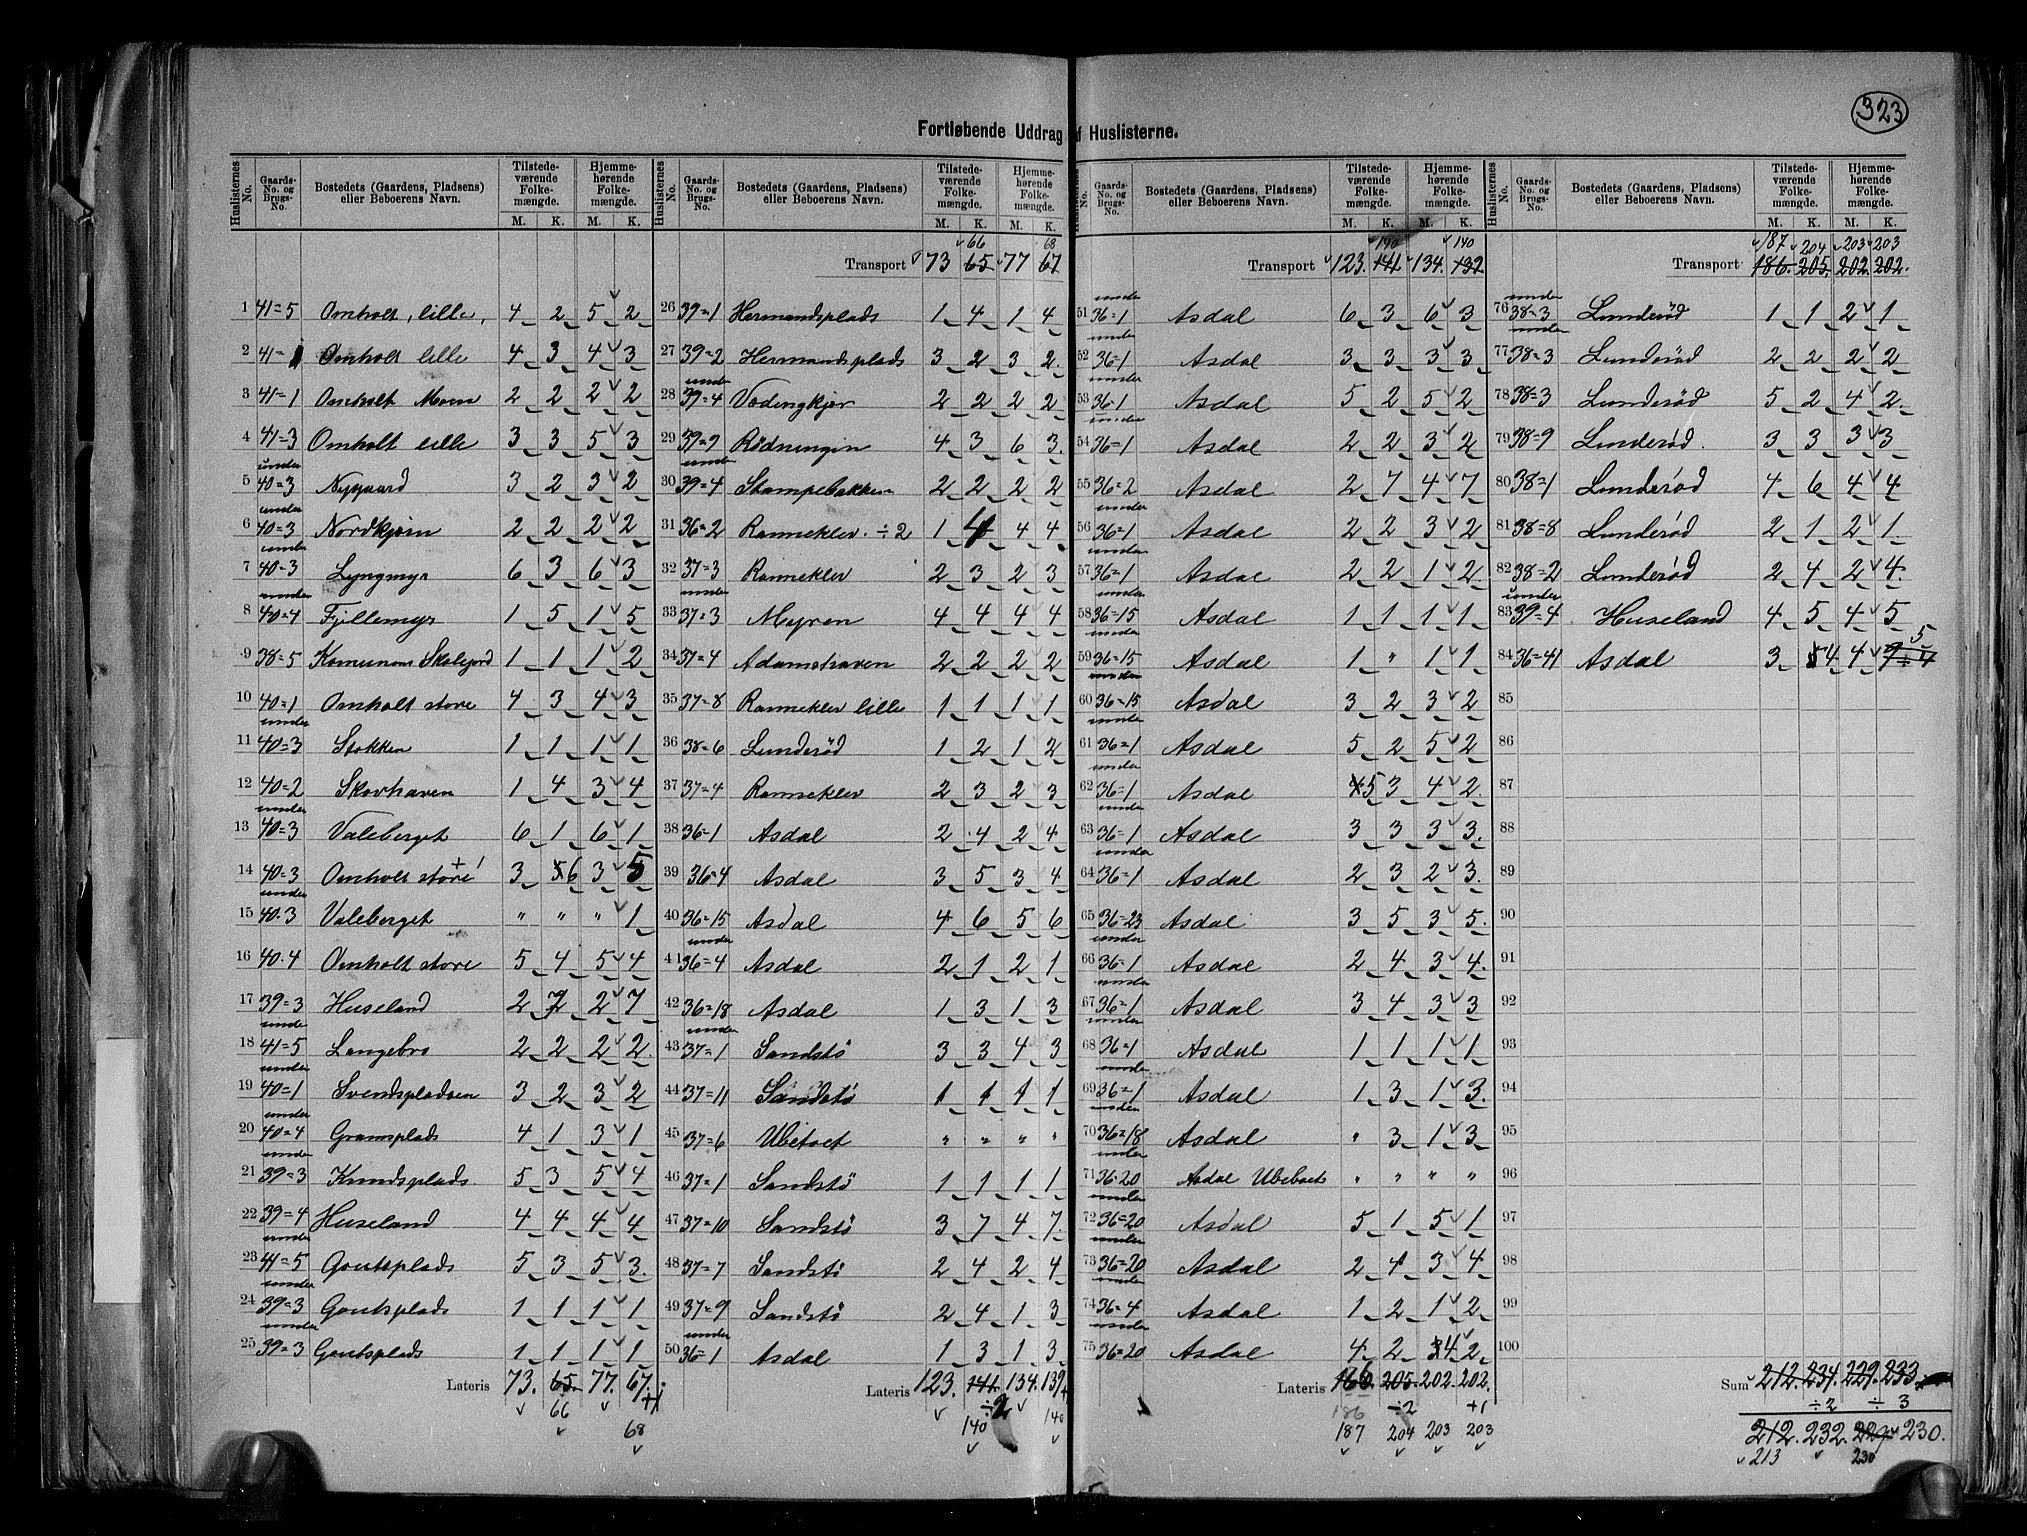 323
Fortløbende Uddrag af Huslisterne.
Huslisternes No. | Gaards-No. og Brugs-No. | Bostedets (Gaardens, Pladsens) eller Beboerens Navn. | Tilstedeværende Folkemængde. M. K. | Hjemmehørende Folkemængde. M. K.
Transport
1 41=5 Omholt, lille, 4 2 5 2
2 41=1 Omholt lille 4 3 4 3
3 41=1 Omholt Moen 2 2 2 2
4 41=3 Omholt lille 3 3 5 3
5 under 40=3 Nygaard 3 2 3 2
6 under 40=3 Nordkjern 2 2 2 2
7 under 40=3 Lyngmyr 6 3 6 3
8 under 40=4 Fjellemyr 1 5 1 5
9 38=5 Komunens Skolejord 1 1 1 2
10 40=1 Omholt store 4 3 4 3
11 under 40=3 Stokken 1 1 1 1
12 40=2 Skovhaven 1 4 3 4
13 under 40=3 Valeberget 6 1 6 1
14 40=3 Omholt store 3 6 3 5
15 under 40=3 Valeberget " " " 1
16 40=4 Omholt store 5 4 5 4
17 39=3 Huseland 2 7 2 7
18 under 41=5 Langebro 2 2 2 2
19 under 40=1 Svendspladsen 3 2 3 2
20 under 40=4 Gramsplads 4 1 3 1
21 under 39=3 Knudsplads 5 3 5 4
22 39=4 Huseland 4 4 4 4
23 under 41=5 Goutsplads 5 3 5 3
24 under 39=3 Goutsplads 1 1 1 1
25 under 39=3 Goutsplads 1 1 1 1
Lateris 73. 65. 77. 67. +1
66 68
66 68
Transport 73 65 77 67
26 39=1 Hermandsplads 1 4 1 4
27 39=2 Hermandsplads 3 2 3 2
28 under 39=4 Vodingkjer 2 2 2 2
29 39=9 Rødningen 4 3 6 3
30 under 39=4 Stampebakken 2 2 2 2
31 36=2 Rannekler ÷2 1 4 4 4
32 37=3 Rannekler 2 3 2 3
33 under 37=3 Myren 4 4 4 4
34 37=4 Adamshaven 2 2 2 2
35 37=8 Rannekler lille 1 1 1 1
36 38=6 Lunderød 1 2 1 2
37 37=4 Rannekler 2 3 2 3
38 36=1 Asdal 2 4 2 4
39 36=4 Asdal 3 5 3 4
40 36=15 Asdal 4 6 5 6
41 under 36=4 Asdal 2 1 2 1
42 36=18 Asdal 1 3 1 3
43 under 37=1 Sandstø 3 3 4 3
44 37=11 Sandstø 1 1 1 1
45 37=6 Ubeboet " " " "
46 37=1 Sandstø 1 1 1 1
47 37=10 Sandstø 3 7 4 7
48 37=7 Sandstø 2 4 2 4
49 37=9 Sandstø 2 4 1 3
50 under 36=1 Asdal 1 3 1 3
Lateris 123. 141. 134. 139 +1
÷2
140 140
140 140
Transport 123. 141. 134. 132
51 under 36=1 Asdal 6 3 6 3
52 under 36=1 Asdal 3 3 3 3
53 under 36=1 Asdal 5 2 5 2
54 under 36=1 Asdal 2 2 3 2
55 36=2 Asdal 2 7 4 7
56 under 36=1 Asdal 2 2 3 2
57 under 36=1 Asdal 2 2 1 2
58 under 36=15 Asdal 1 1 1 1
59 under 36=15 Asdal 1 " 1 1
60 under 36=15 Asdal 3 2 3 2
61 under 36=1 Asdal 5 2 5 2
62 under 36=1 Asdal 5 3 4 2
63 under 36=1 Asdal 3 3 3 3
64 under 36=1 Asdal 2 3 2 3
65 36=23 Asdal 3 5 3 5
66 under 36=1 Asdal 2 4 3 4
67 under 36=1 Asdal 3 4 3 3
68 under 36=1 Asdal 1 1 1 1
69 under 36=1 Asdal 1 3 1 3
70 under 36=18 Asdal " 3 1 3
71 under 36=20 Asdal Ubeboet " " " "
72 under 36=20 Asdal 5 1 5 1
73 under 36=20 Asdal 2 4 3 4
74 under 36=4 Asdal 1 2 1 2
75 under 36=20 Asdal 4 2 4 2
Lateris 166. 205. 202. 202.
186 ÷2 +1
187 204 203 203
187 204 203 203
Transport 186. 205. 202. 202.
76 under 38=3 Lunderød 1 1 2 1
77 under 38=3 Lunderød 2 2 2 2
78 38=3 Lunderød 5 2 4 2
79 38=9 Lunderød. 3 3 3 3
80 38=1 Lunderød 4 6 4 4
81 38=8 Lunderød 2 1 2 1
82 38=2 Lunderød 2 4 2 4
83 under 39=4 Huseland 4 5 4 5
84 36=41 Asdal 3 4 4 5
85
86
87
88
89
90
91
92
93
94
95
96
97
98
99
100
Sum 212. 234. 229. 233
÷2 ÷ 3
212. 232. 229 230.
213 230